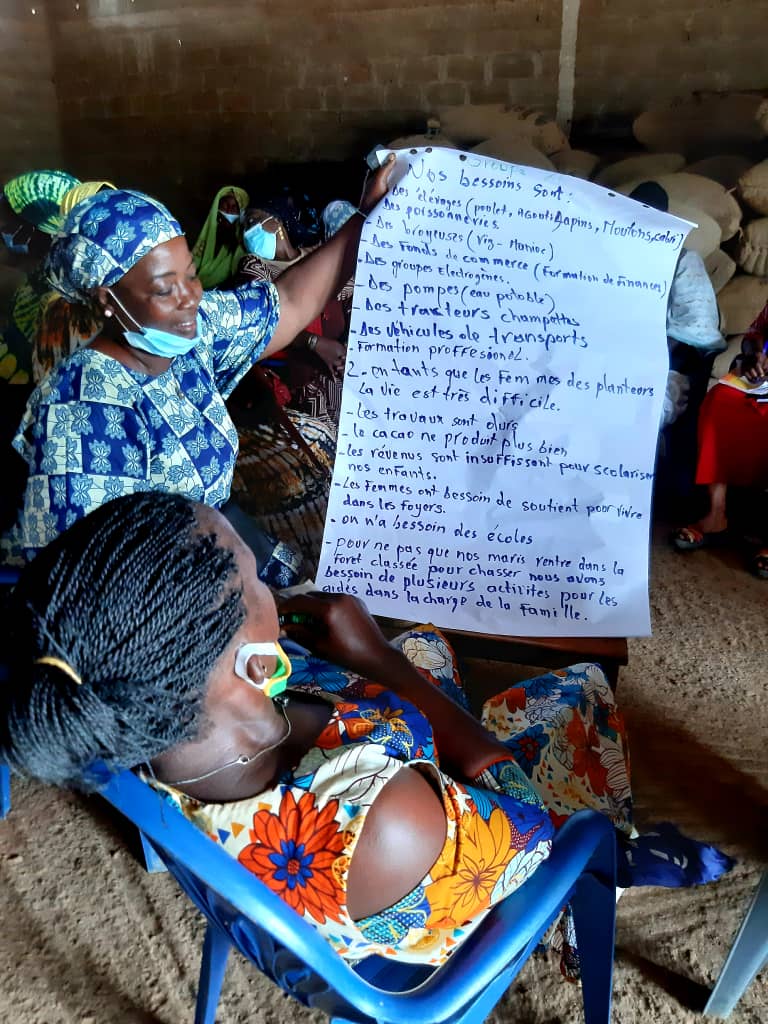 Groupe
Nos bessoins sont:
Des élévages (poulet, Agouti, Lapins, Moutons, cabri)
Des poissonneries
- Des broyeuses (Viv - Manioc)
- Des Fonds de commerce (Formation de Finances)
- Des groupes Electrogènes.
- Des pompes (eau potable)
- Des tracteurs champettes
- Des véhicules de transports
- Formation proffesionel.
2- en tants que les Femmes des planteurs
la vie est très difficile.
- Les travaux sont durs
- le cacao ne produit plus bien
- les révenus sont insuffissant pour scolariser
nos enfants.
- Les Femmes ont besoin de soutient pour vivre
dans les foyers.
- on n'a besoin des écoles
- pour ne pas que nos maris rentre dans la
Foret classée pour chasser nous avons
besoin de plusieurs activites pour les
aidés dans la charge de la Famille.